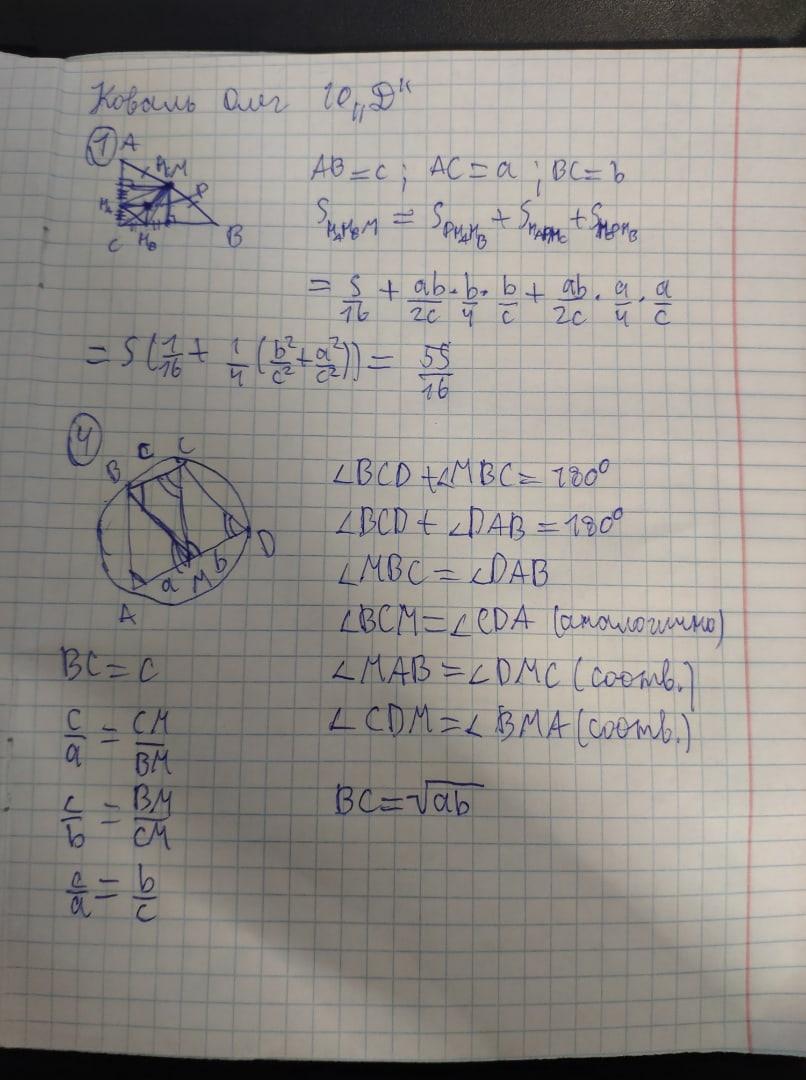 Коваль Олег 10 „Д“
1
A
M
P
C
B
AB = c ; AC = a ; BC = b
= S/16 + ab/2c · b/4 · b/c + ab/2c · a/4 · a/c
= S(1/16 + 1/4 (b²/c² + a²/c²)) = 5S/16
4
B
c
C
D
a
M
b
A
∠BCD + ∠MBC = 180°
∠BCD + ∠DAB = 180°
∠MBC = ∠DAB
∠BCM = ∠CDA (аналогично)
BC = c
∠MAB = ∠DMC (соотв.)
c/a = CM/BM
∠CDM = ∠BMA (соотв.)
c/b = BM/CM
BC = √ab
c/a = b/c